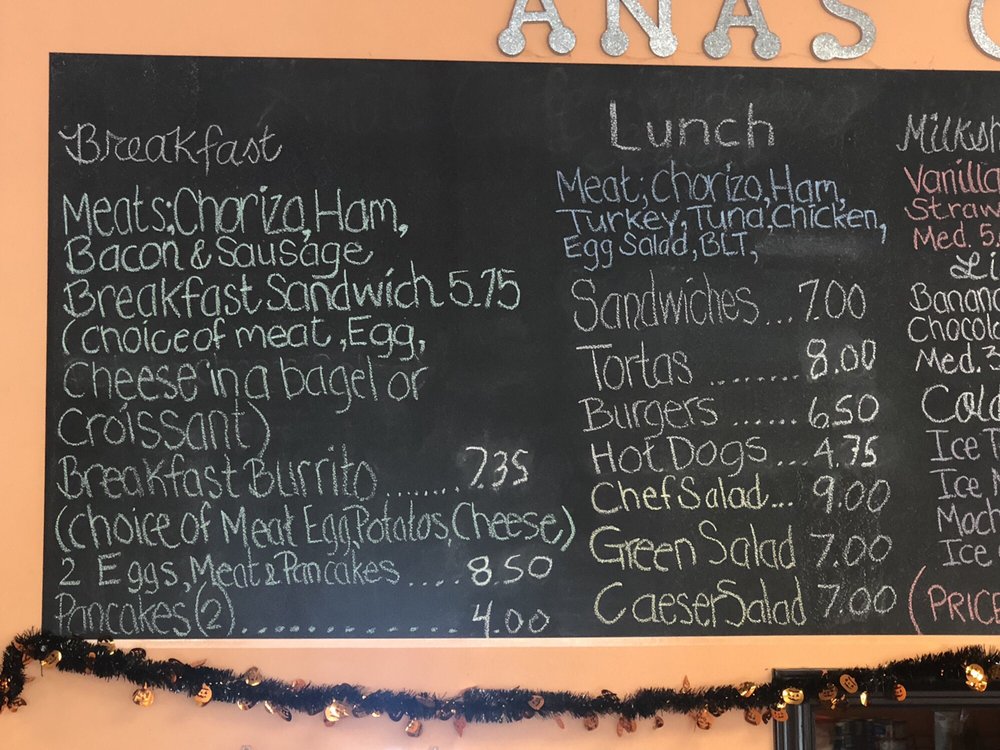 ANAS
Breakfast
Meats:Chorizo, Ham,
Bacon & Sausage
Breakfast Sandwich 5.75
(choice of meat, Egg,
Cheese in a bagel or
Croissant)
Breakfast Burrito ....... 7.35
(choice of Meat Egg, Potatos, Cheese)
2 Eggs, Meat & Pancakes ..... 8.50
Pancakes (2) .............. 4.00
Lunch
Meat; Chorizo, Ham,
Turkey, Tuna, Chicken,
Egg Salad, BLT,
Sandwiches... 7.00
Tortas ........ 8.00
Burgers ...... 6.50
Hot Dogs ... 4.75
Chef Salad... 9.00
Green Salad 7.00
Caeser Salad 7.00
Milksh
Vanilla
Straw
Med. 5
Li
Banana
Chocol
Med. 3
Cold
Ice T
Ice
Moch
Ice
(PRICE